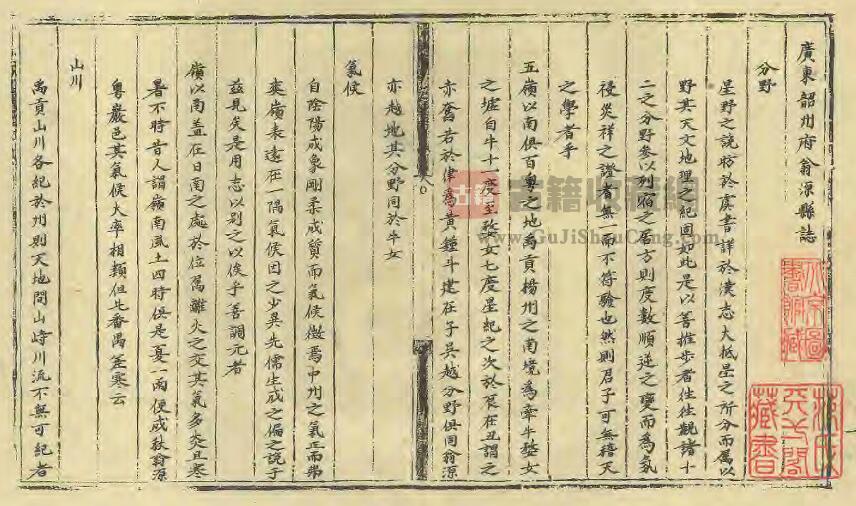 廣東韶州府翁源縣誌
分野
星野之說昉於虞書詳於漢志大抵星之所分而属以
野其天文地理之紀固如此是以善推步者徃徃觀諸十
二之分野參以列宿之居方則度數順逆之變而為氛
祲災祥之證者無一而不符驗也然則君子可無藉天
之學者乎
五嶺以南俱百粤之地為貢楊州之南境為牽牛婺女
之墟自牛十一度至婺女七度星紀之次於辰在丑謂之
亦奮若於律為黄鍾斗建在子吳越分野俱同翁源
亦越地其分野同於牛女
氣候
自陰陽成象剛柔成質而氣候徵焉中州之氣正而弗
爽嶺表遠在一隅氣候因之少異先儒生成之偏之說于
兹見矣是用志以别之以俟乎善調元者
嶺以南盖在日南之處於位属離火之交其氣多炎且寒
暑不時昔人謂嶺南風土四時俱是夏一雨便成秋翁源
粤巖邑其氣候大率相類但比番禺差寒云
山川
禹貢山川各紀於州則天地間山峙川流不無可紀者
古籍 古籍收藏網
www.GuJiShouCang.com
藏書